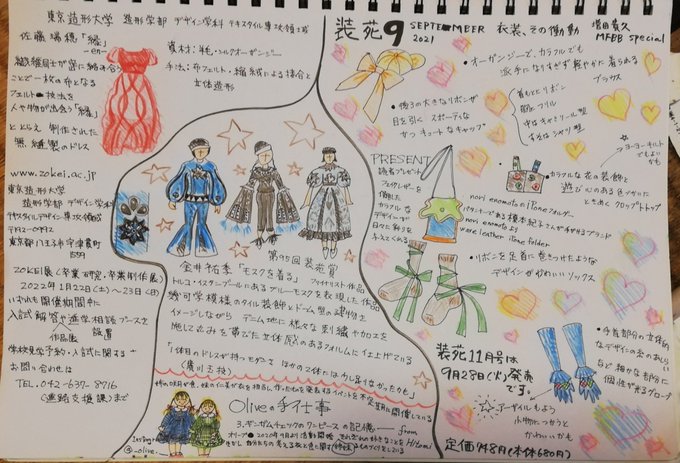 東京造形大学 造形学部 デザイン学科 テキスタイルデザイン専攻領域
佐藤瑞穂「縁」
-en-
繊維同士が密に絡み合う
ことで一枚の布となる
フェルト技法を
人や物が出会う「縁」
ととらえ 制作された
無縫製のドレス
素材:羊毛・シルクオーガンジー
手法:布フェルト・縮絨による接合と
立体造形
www.zokei.ac.jp
東京造形大学
造形学部 デザイン学科
テキスタイルデザイン専攻領域
〒192-0992
東京都八王子市宇津貫町
1556
ZOKEI展(卒業研究・卒業制作展)
2022年1月22日(土)~23日(日)
いずれも開催期間中に
入試解答や進学相談ブースを
作品展 設置
学校見学予約・入試に関する
お問い合わせは
TEL.042-637-8716
(進路支援課)まで
第95回装苑賞
金井祐季「モスクを着る」 ファイナリスト作品
トルコ・イスタンブールにあるブルーモスクを表現した作品
幾何学模様のタイル装飾とドーム型の建物を
イメージしながら デニム地に様々な刺繍や加工を
施して凹みを帯びた立体感のあるフォルムに仕上げている
「1体目のドレスが持つモダンさ ほかの2体には少し足りなかったかも」
(廣川玉枝)
Oliveの手仕事
3.ギンガムチェックのワンピースの記憶 from
Hitomi
オリーブ● 2020年9月より活動開始
Instagram
@_olive._
装苑9 SEPTEMBER 2021
衣装、その働動
増田貴久
MFBB special
・オーガンジーで、カラフルでも
派手になりすぎず軽やかに着られる
ブラウス
首もととリボン
胸にフリル
中はキャミソール型
・後ろの大きなリボンが
目を引く スポーティな
かつ キュートなキャップ
☆ヨーヨーキルト
でもよいかも
・カラフルな花の装飾と
遊び心のある色づかいに
ときめくクロップトトップ
PRESENT
読者プレゼント
フェイクレザーを
使用した
カラフルな
デザインが
日々に彩りを
与えてくれる
nori enomoto の iTone フォルダー
パタンナーである榎本紀子さんが手がけるブランド
nori enomoto
ware leather iTone folder
・リボンを足首に巻きつけたような
デザインがかわいいソックス
・手首部分の立体的
なデザインや糸のあしらい
など 細かな部分に
個性が光るグローブ
装苑11月号は
9月28日(火)発売
です。
☆アーガイルもよう
小物につかうと
かわいいかも
定価748円(本体680円)